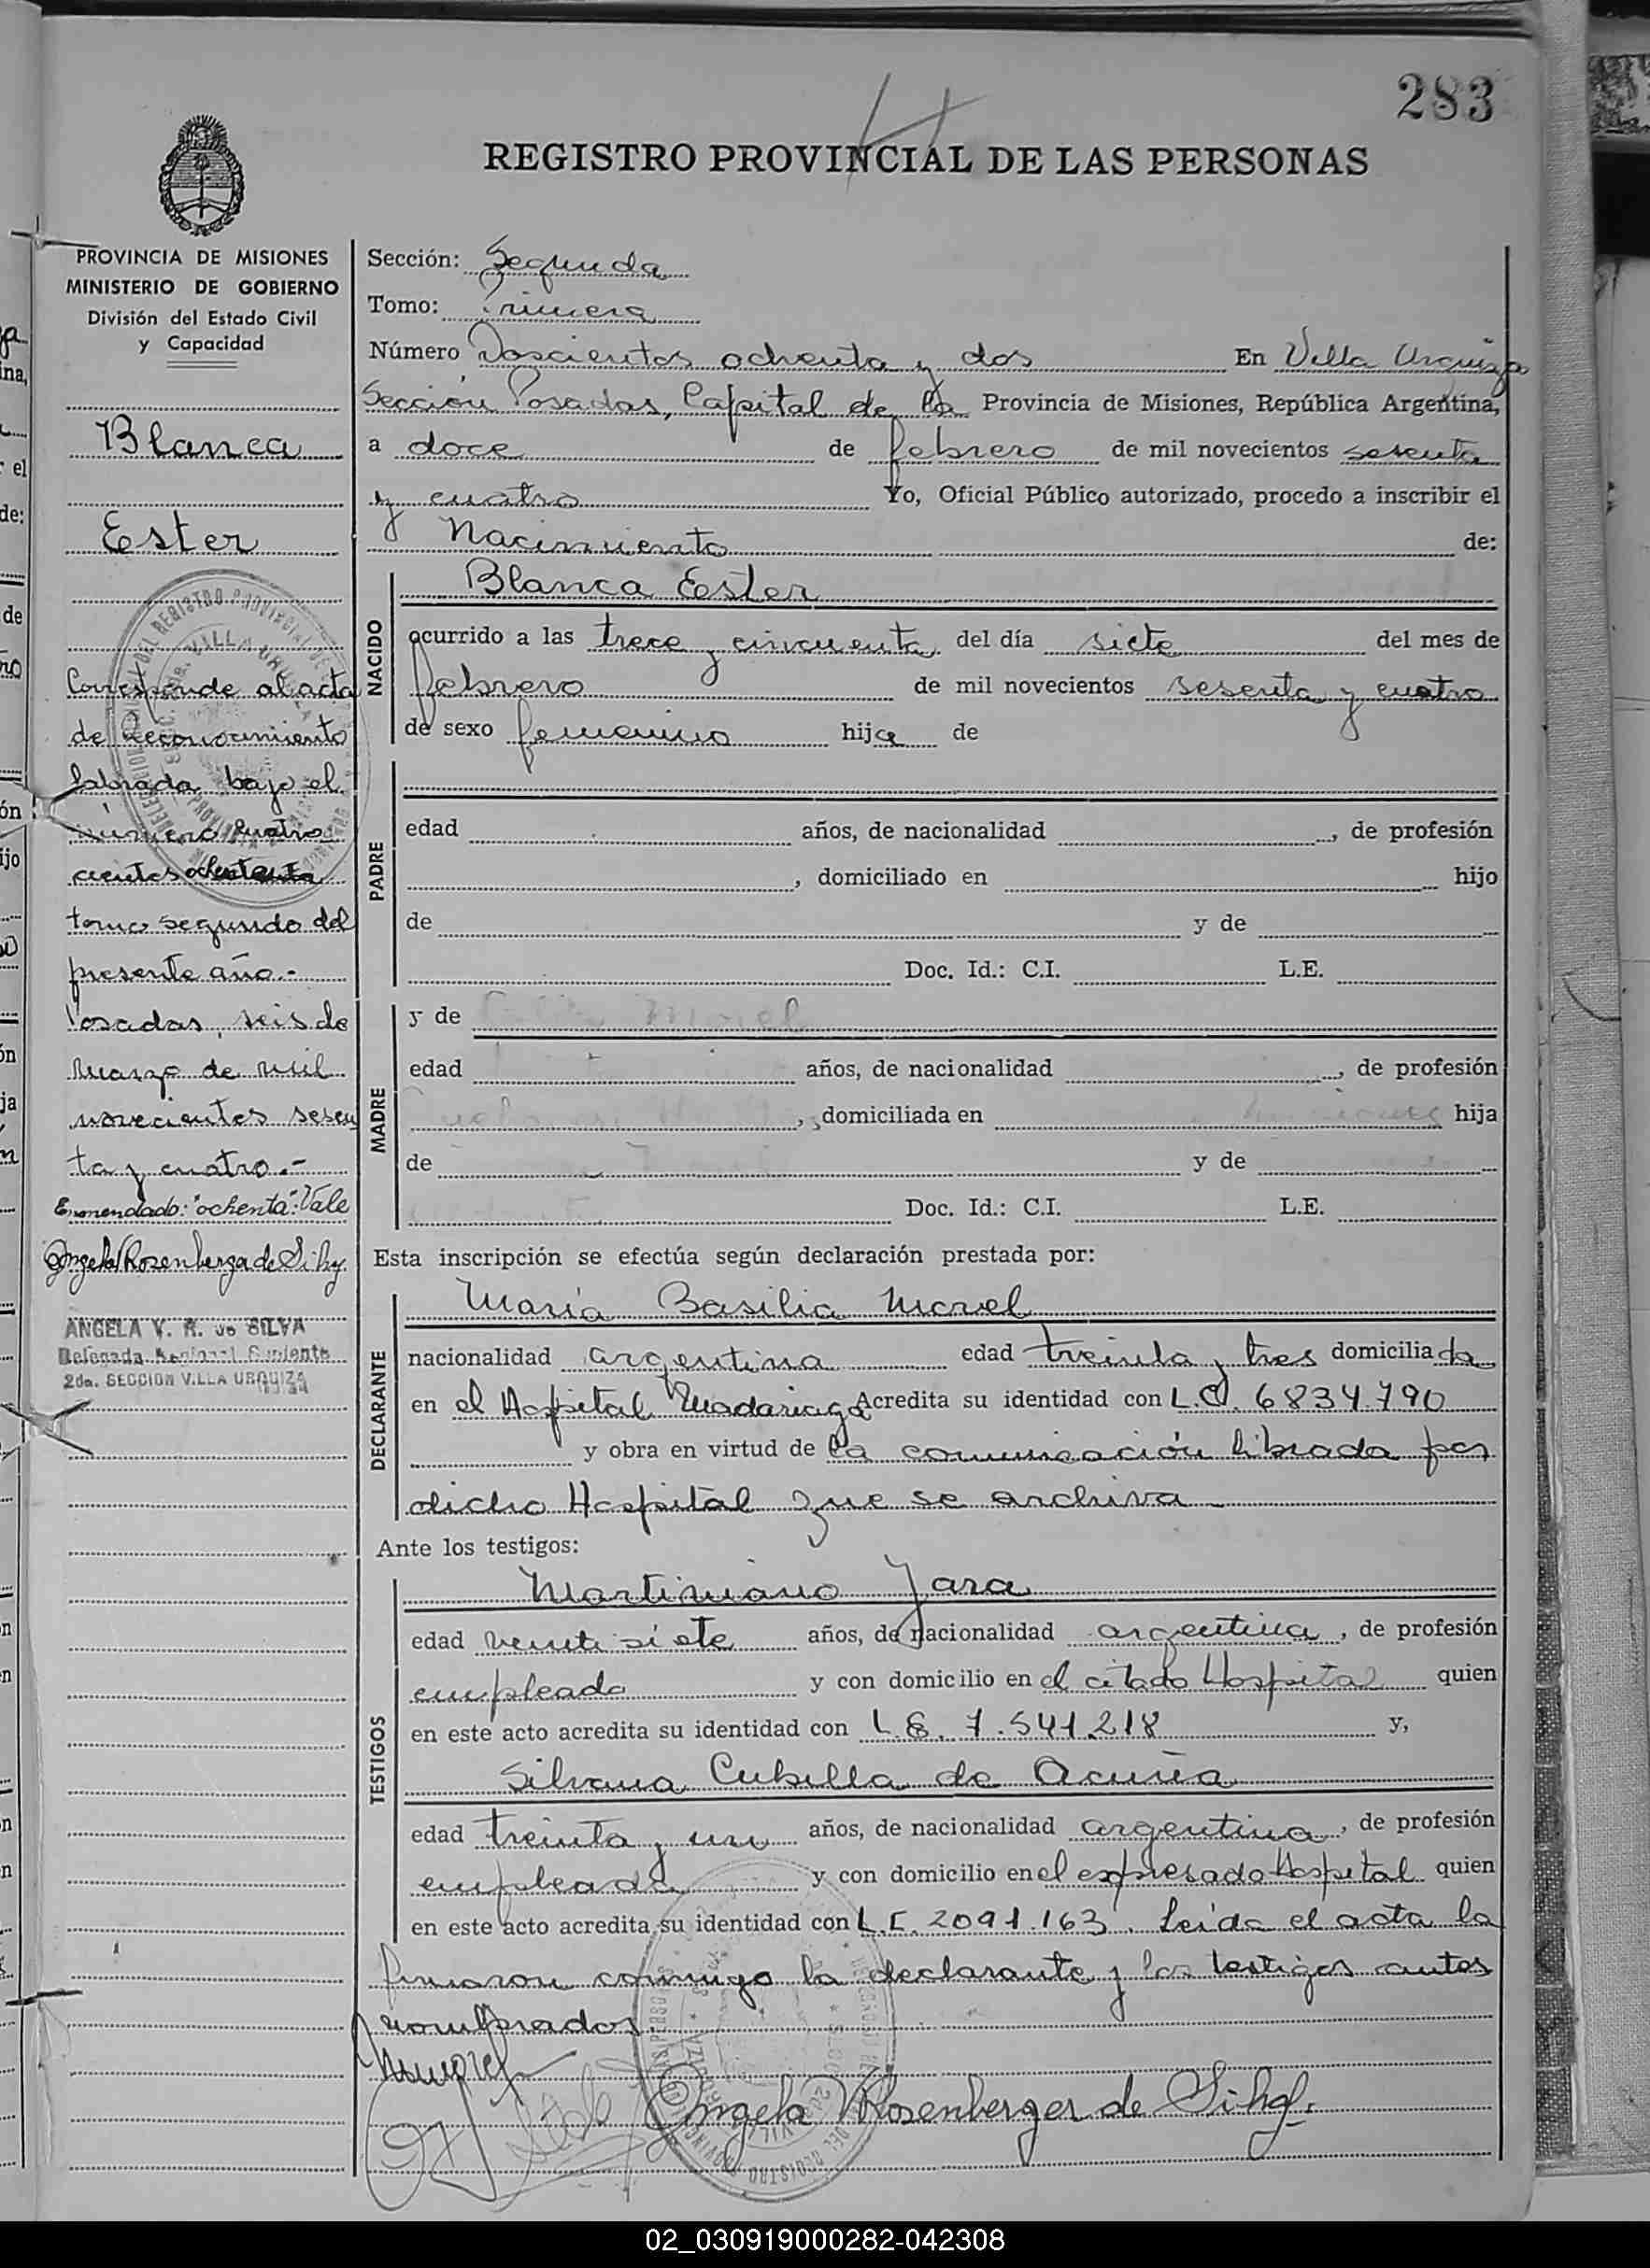 283
REGISTRO PROVINCIAL DE LAS PERSONAS
PROVINCIA DE MISIONES
MINISTERIO DE GOBIERNO
División del Estado Civil
y Capacidad
Blanca
Ester
Corresponde al acta
de Reconocimiento
labrada bajo el
número cuatro
cientos ochenta
tomo segundo del
presente año.-
Posadas, seis de
marzo de mil
novecientos sesen
ta y cuatro.-
Enmendado: "ochenta": Vale
ANGELA V. R. de SILVA
Delegada Regional Suplente
2da. SECCION VILLA URQUIZA
Sección: Segunda
Tomo: Primera
Número Doscientos ochenta y dos En Villa Urquiza
Sección Posadas, Capital de la Provincia de Misiones, República Argentina,
a doce de febrero de mil novecientos sesenta
y cuatro Yo, Oficial Público autorizado, procedo a inscribir el
Nacimiento de:
NACIDO
Blanca Ester
ocurrido a las trece y cincuenta del día siete del mes de
febrero de mil novecientos sesenta y cuatro
de sexo femenino hija de
PADRE
edad años, de nacionalidad , de profesión
, domiciliado en hijo
de y de
Doc. Id.: C.I. L.E.
MADRE
y de Morel
edad años, de nacionalidad , de profesión
, domiciliada en hija
de y de
Doc. Id.: C.I. L.E.
Esta inscripción se efectúa según declaración prestada por:
DECLARANTE
María Basilia Morel
nacionalidad argentina edad treinta y tres domiciliada
en el Hospital Madariaga Acredita su identidad con L.C. 6834.790
y obra en virtud de la comunicación librada por
dicho Hospital que se archiva
Ante los testigos:
TESTIGOS
Martiniano Jara
edad veinti siete años, de nacionalidad argentina, de profesión
empleado y con domicilio en el citado Hospital quien
en este acto acredita su identidad con L.E. 7.541.218 y,
Silvana Cubilla de Acuña
edad treinta y un años, de nacionalidad argentina, de profesión
empleada y con domicilio en el expresado Hospital quien
en este acto acredita su identidad con L.C. 2091.163. Leída el acta la
firmaron conmigo la declarante y los testigos antes
nombrados.
Angela V Rosenberger de
02_030919000282-042308